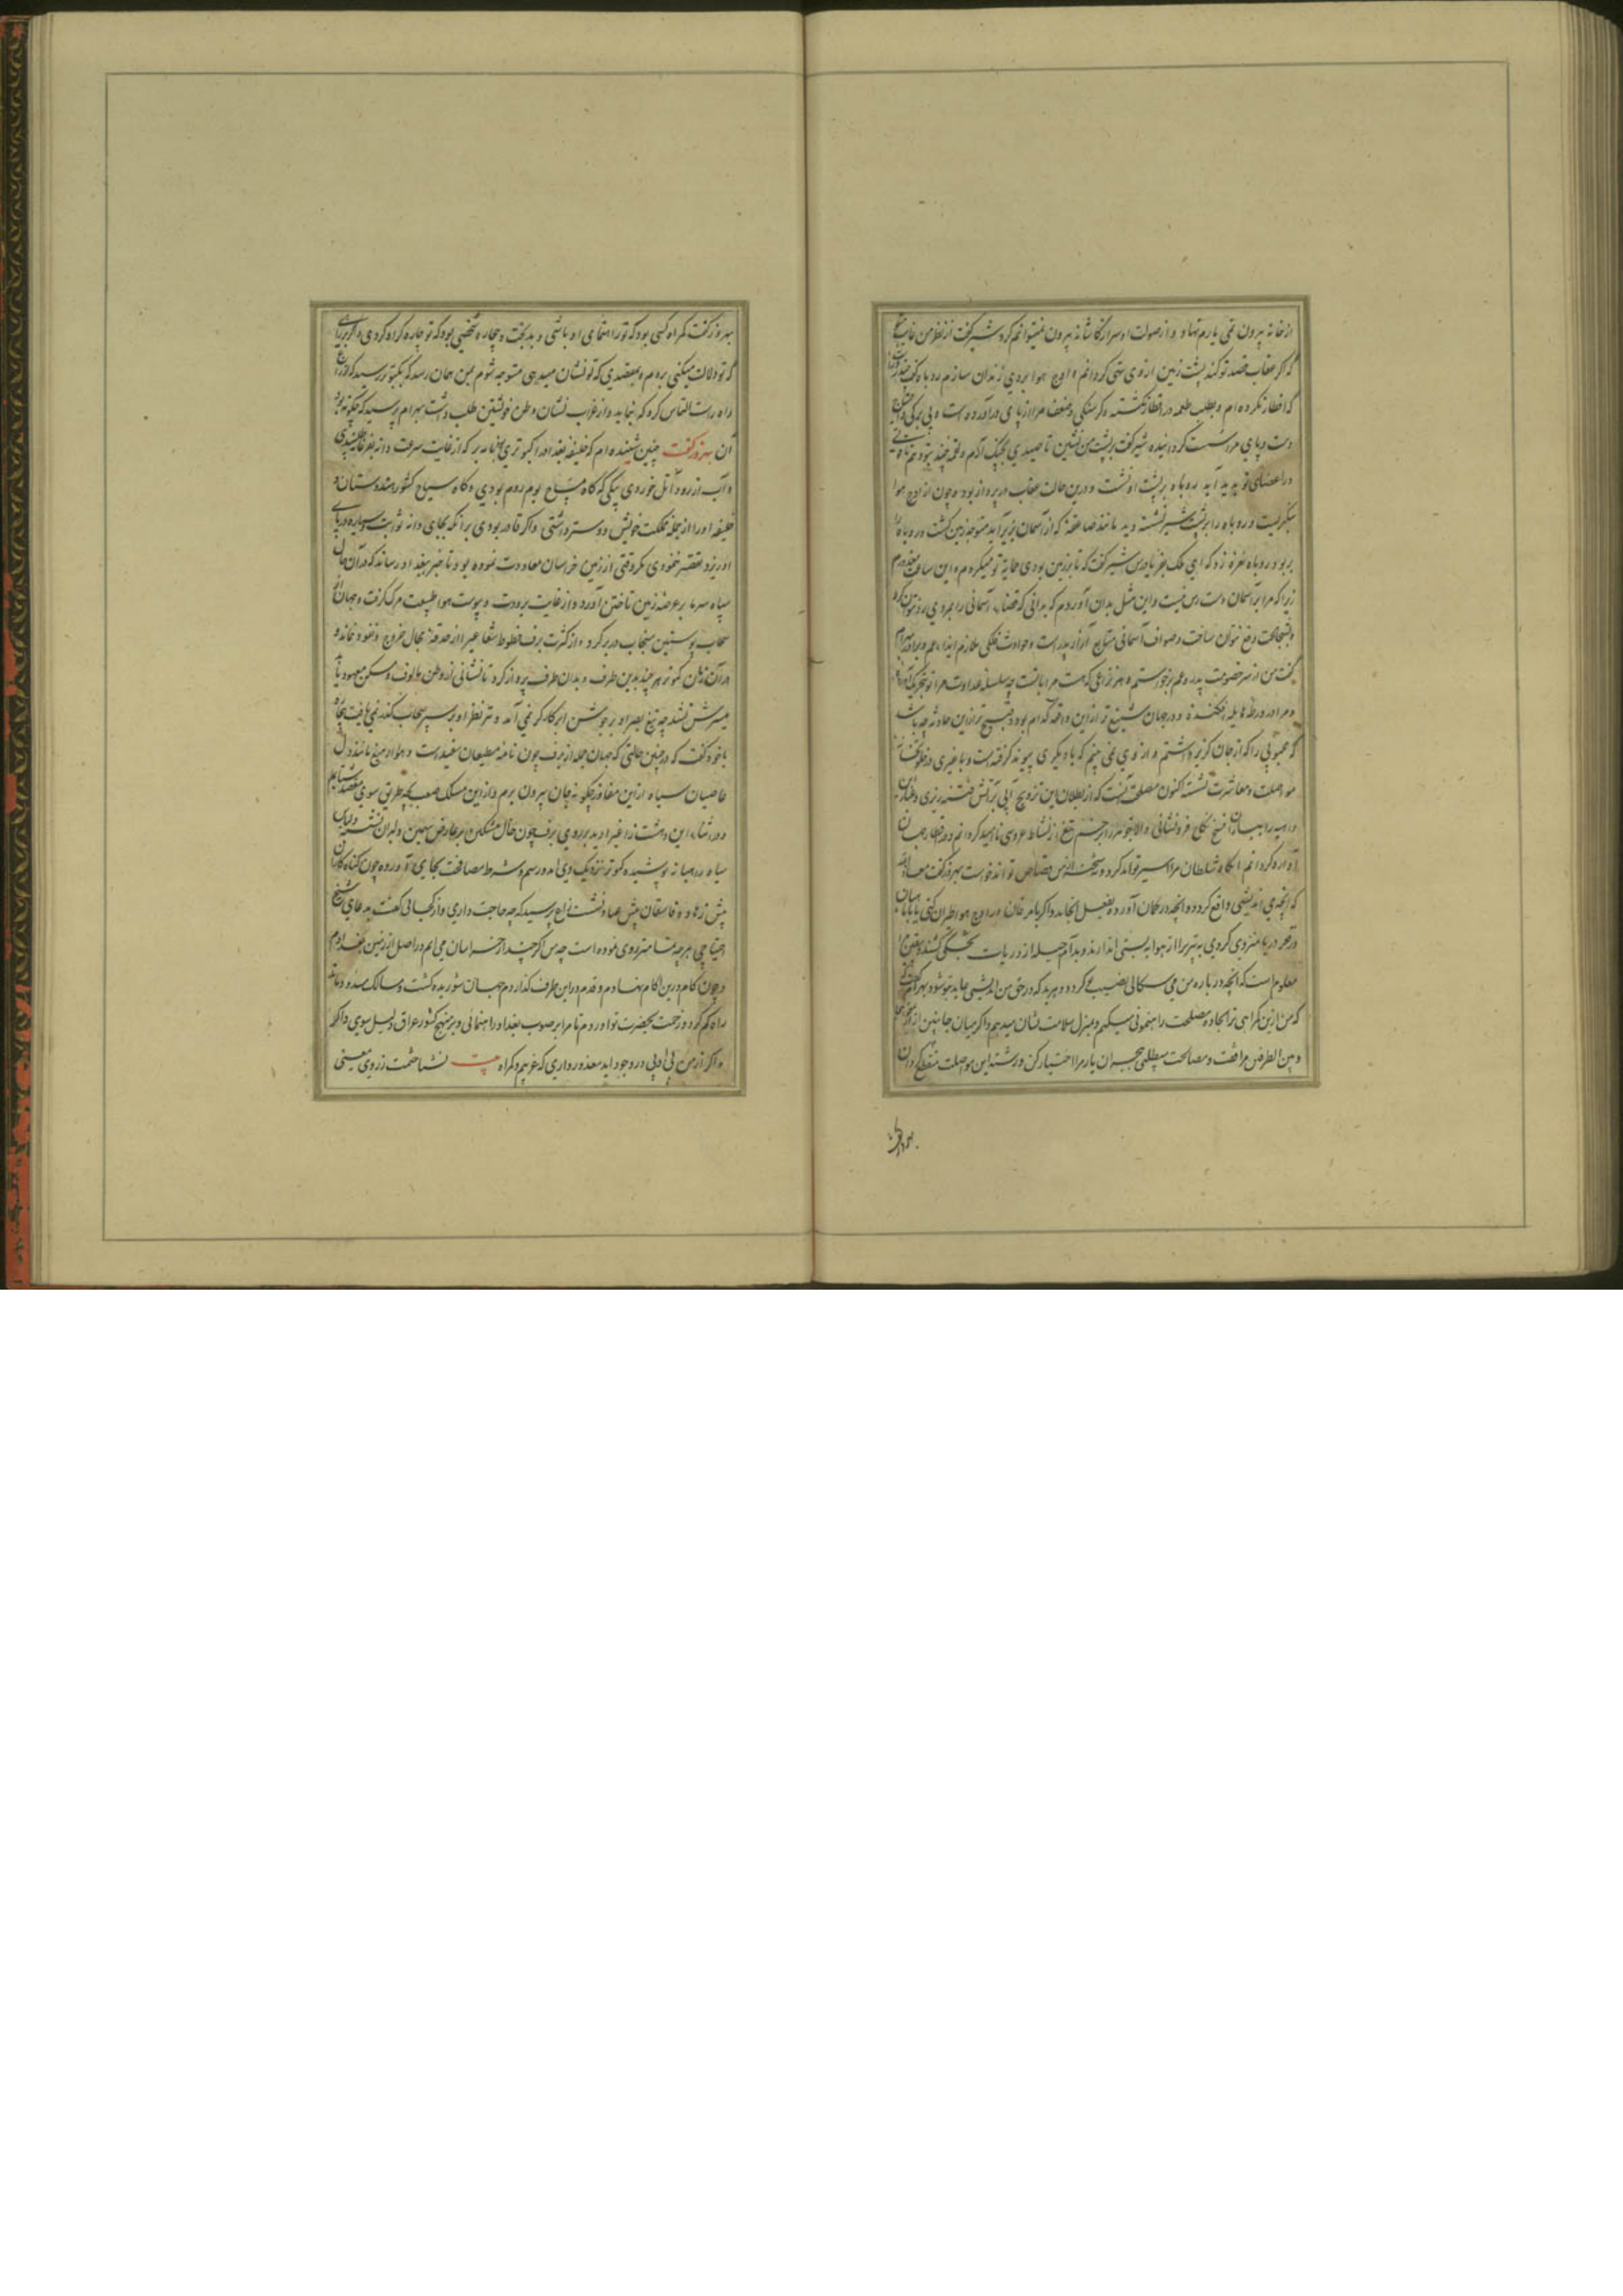 از خانه بیرون نمی یارم نهاد و از صولت او سر از کاشانه بیرون نمیتوانم کرد شیر گفت از نظر من غایب
که اگر عقاب قصد تو کند پشت زمین از وی تهی گردانم و اوج هوا بروی زندان سازم روباه گفت
که افطار نکرده ام و بطلب طعمه در اقطار نکشته و گرسنگی و ضعف مرا از پای در آورده است و بی برکی
دست و پای مرا سست گردانیده شیر گفت بر پشت من نشین تا صیدی بچنگ آرم و لقمه چند بتو دهم تا
در اعضای تو پدید آید روباه بر پشت او نشست و درین حالت عقاب در پرواز بود و چون از اوج هوا
بنگریست و روباه را بر پشت شیر نشسته دید مانند صاعقه که از آسمان بزیر آید متوجه زمین گشت و روباه را
بربود روباه نعره زد که ای ملک بفریاد رس شیر گفت که تا بر زمین بودی حمایة تو میکردم و این ساعت معذورم
زیرا که مرا بر آسمان دست رس نیست و این مثل بدان آوردم که بدانی که قضاء آسمانی را بمردی رد نتوان کرد
و بشجاعت دفع نتوان ساخت و صواف آسمانی نتایج آزار پدر است و حوادث فلکی ملازم ایذاء عم و برادر بهرام
گفت من از سر خصومت پدر و عم برخواستم و هر نزاعی که هست مرا با تست چه سلسله عداوت مرا تو تحریک
و مرا در ورطه هایله افکنده و در جهان شنیع تر از این واقعه کدام بود و قبیح تر از این حادثه چه باشد
که محبوبی را که از جان گزیر داشتم و از وی نمی بینم که با دیگری پیوند گرفته است و با غیری در خلوتخانه
مواصلت و معاشرت نشسته اکنون مصلحت آنست که از بطلان این تزویج آبی بر آتش فتنه ریزی و غبار
داهیه را بباران فسخ نکاح فرونشانی والا بخونریز زخم تیغ از نشاط عروسی نا امید گردانم و در اقطار جهان
آواره گردانم آنگاه نه سلطان مرا اسیر تواند کرد و نه شحنه از من قصاص تواند خواست بهروز گفت معاذ الله
که آنچه می اندیشی واقع گردد و آنچه در گمان آورده بفعل انجامد و اگر با مرغان در اوج هوا طیران کنی یا با ماهیان
در قعر دریا منزوی گردی به تیر ترا از هوا به پستی اندازند و بدام حیله از دریات بخشکی کشند و یقین
معلوم است که آنچه در باره من می سکالی نصیب تو گردد و هر بد که در حق من اندیشی عاید بتو شود بهرام گفت
که من از این گمراهی ترا بجاده مصلحت راهنمونی میکنم و بمنزل سلامت نشان میدهم و اگر میان جانبین
و بین الطرفین مرافقت و مصالحت میطلبی هجران یار مرا اختیار کن و رشته این مواصلت منقطع گردان
بهروز
بهروز گفت گمراه کسی بود که تو راهنمای او باشی و بدبخت و بیچاره شخصی بود که تو چاره گر او گردی و اگر
که تو دلالت میکنی بروم و بمقصدی که تو نشان میدهی متوجه شوم بمن همان رسد که بکبوتر رسید که از زاغ
راه راست التماس کرد که بنماید و از غراب نشان وطن خویشتن طلب داشت بهرام پرسید که چگونه بود
آن بهروز گفت چنین شنیده ام که خلیفه بغداد را کبوتری بود نامه بر که از غایت سرعت دانه
و آب از رود آمل خوردی پیکی که گاه مساح بوم روم بودی و گاه سیاح کشور هندوستان و
خلیفه او را از جمله مملکت خویش دوستر داشتی و اگر قادر بودی بر آنکه بجای دانه ثوابت سیاره در پای
او ریزد تقصیر ننمودی مگر وقتی از زمین خراسان معاودت نموده بود تا خبر ببغداد رساند که در آن حال
سپاه سرما بر عرصه زمین تاختن آورد و از غایت برودت و یبوست هوا طبیعت مرگ گرفت و جهان
سحاب پوستین سنجاب در بر کرد و از کثرت برف خطوط شعاعیرا از حدقه مجال خروج و نفوذ نماند و
در آن زمان کبوتر هر چند بدین طرف و بدان طرف پرواز کرد تا نشانی از وطن مالوف و مسکن معهود یابد
میسرش نشد چه تیغ بصر او بر جوشن ابر کارگر نمی آمد و تیر نظر او بر سپر سحاب گذر نمی یافت
با خود گفت که در چنین حالتی که جهان جمله از برف چون نامه مطیعان سفید است و هوا از میغ مانند دل
عاصیان سیاه از این مفاوز چگونه جان بیرون برم و از این مسلک صعب بچه طریق سوی مقصد
در اثناء این دهشت زاغیرا دید بر روی برف چون خال مشکین بر عارض سیمین دلبران نشسته و لباس
سیاه رهبانه پوشیده کبوتر نزدیک وی آمد و رسم و شرط مصافحت بجای آورد و چون گناهکاران
پیش زهاد و فاسقان پیش عباد نشست زاغ پرسید که چه حاجت داری و از کجائی گفت بدعای شیخ
احتیاجی هر چه تمامتر روی نموده است چه من اگر چند از خراسان می ایم در اصل از زمین بغدادم
و چون گام درین اکام نهادم و قدم در این طرف گذاردم جهان شوریده گشت و مسالک مسدود ماند
راه گم کرده زحمت بحضرت تو آوردم تا مرا بر صوب بغداد راهنمائی و بر منهج کشور عراق دلیل سوی
و اگر از من بی ادبی در وجود اید معذور داری که غریبم و گمراه بیت نشناختمت ز روی معنی